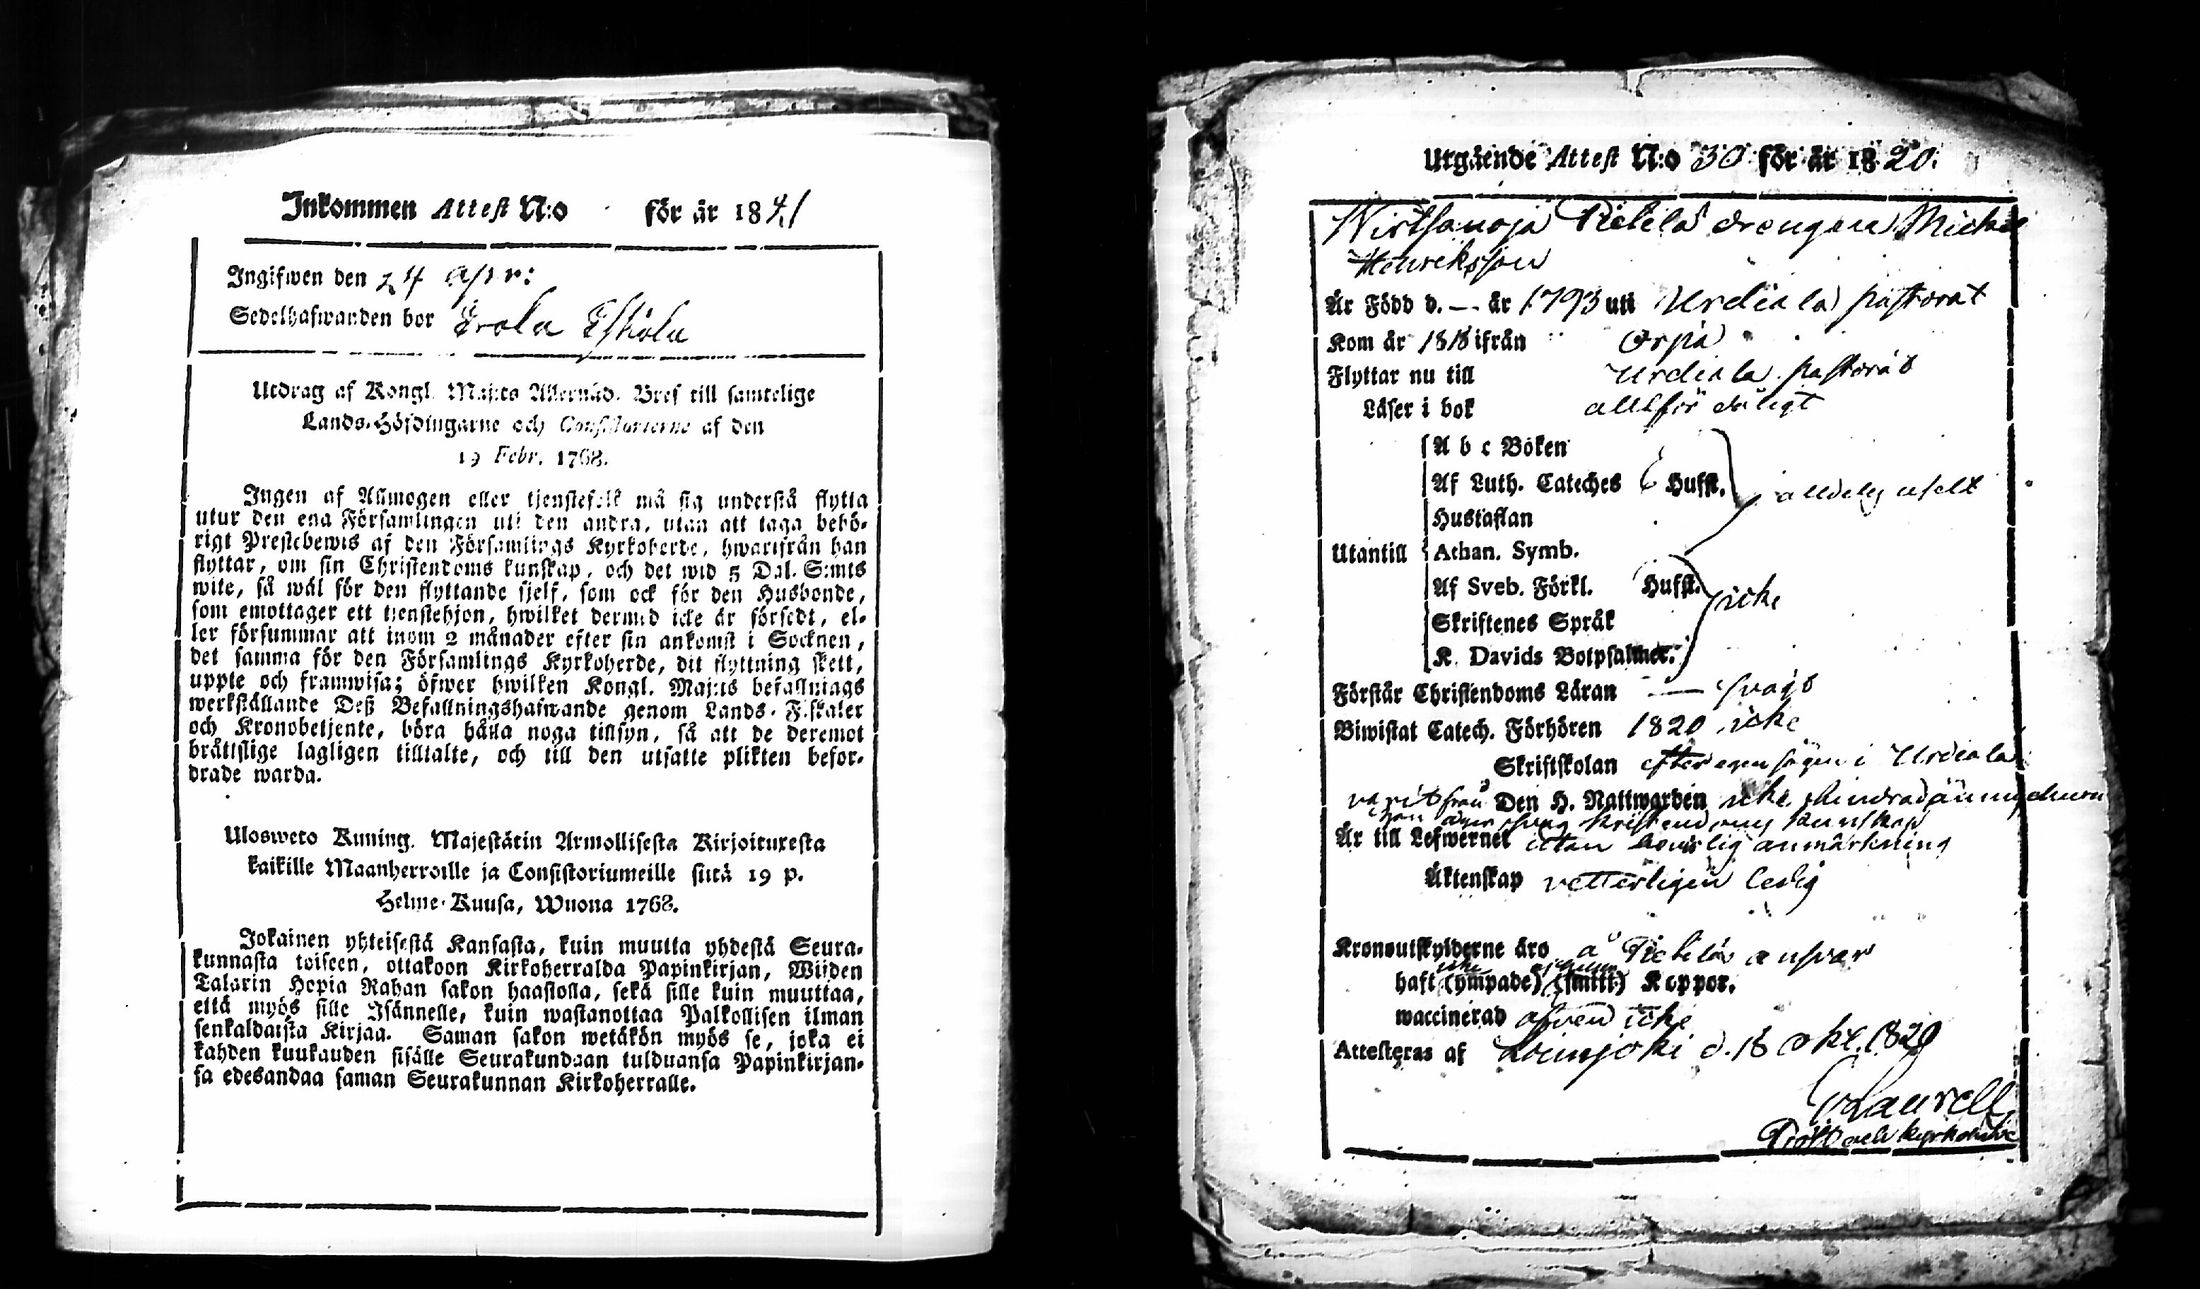 Inkommen Attest N:o för år 1841
Ingifwen den 24 apr:
Sedelhafwanden bor Erola Eskola
Utdrag af Kongl. Maj:ts Allernåd. Bref till samtelige
Lands-Höfdingarne och Consistorierne af den
19 Febr. 1768.
Ingen af Allmogen eller tjenstefolk må sig understå flytta
utur den ena Församlingen uti den andra, utan att taga behö-
rigt Prestebewis af den Församlings Kyrkoherde, hwarifrån han
flyttar, om sin Christendoms kunskap, och det wid 5 Dal. S:mts
wite, så wäl för den flyttande sjelf, som ock för den Husbonde,
som emottager ett tjenstehjon, hwilket dermed icke är försedt, el-
ler försummar att inom 2 månader efter sin ankomst i Socknen,
det samma för den Församlings Kyrkoherde, dit flyttning skett,
uppte och framwisa; öfwer hwilken Kongl. Maj:ts befallnings
werkställande Deß Befallningshafwande genom Lands-Fiskaler
och Kronobetjente, böra hålla noga tillsyn, så att de deremot
bråttslige lagligen tilltalte, och till den utsatte plikten befor-
drade warda.
Ulosweto Kuning. Majestätin Armollisesta Kirjoituxesta
kaikille Maanherroille ja Consistoriumeille siitä 19 p.
Helme-Kuusa, Wuona 1768.
Jokainen yhteisestä Kansasta, kuin muutta yhdestä Seura-
kunnasta toiseen, ottakoon Kirkoherralda Papinkirjan, Wiiden
Talarin Hopia Rahan sakon haastolla, sekä sille kuin muuttaa,
että myös sille Isännelle, kuin wastanottaa Palkollisen ilman
senkaldaista Kirjaa. Saman sakon wetäkön myös se, joka ei
kahden kuukauden sisälle Seurakundaan tulduansa Papinkirjan-
sa edesandaa saman Seurakunnan Kirkoherralle.
Utgående Attest N:o 30 för år 1820.
Wirtsanoja Pietilä drengen Michel
Henriksson
Är Född d. — år 1793 uti Urdiala pastorat
Kom år 1818 ifrån Orpå
Flyttar nu till Urdiala pastorat
Läser i bok alltför dåligt
A b c Boken
Af Luth. Cateches Hufst. alldeles uselt
Hustaflan
Utantill Athan. Symb.
Af Sveb. Förkl. Hufst. icke
Skriftenes Språk
K. Davids Botpsalmer.
Förstår Christendoms Läran — svagt
Biwistat Catech. Förhören 1820 icke
Skriftskolan efter egen sägen i Urdiala
Den H. Nattwarden icke
han äger svag kristendoms kunskap
Är till Lefwernet utan anmärkning
Äktenskap vetterligen ledig
Kronoutskylderne äro å Pietilä ansvar
haft (ympade) (smitt.) Koppor.
waccinerad äfven icke
Attesteras af Loimjoki d. 18 okt. 1820
Laurell
Prost och kyrkoherde